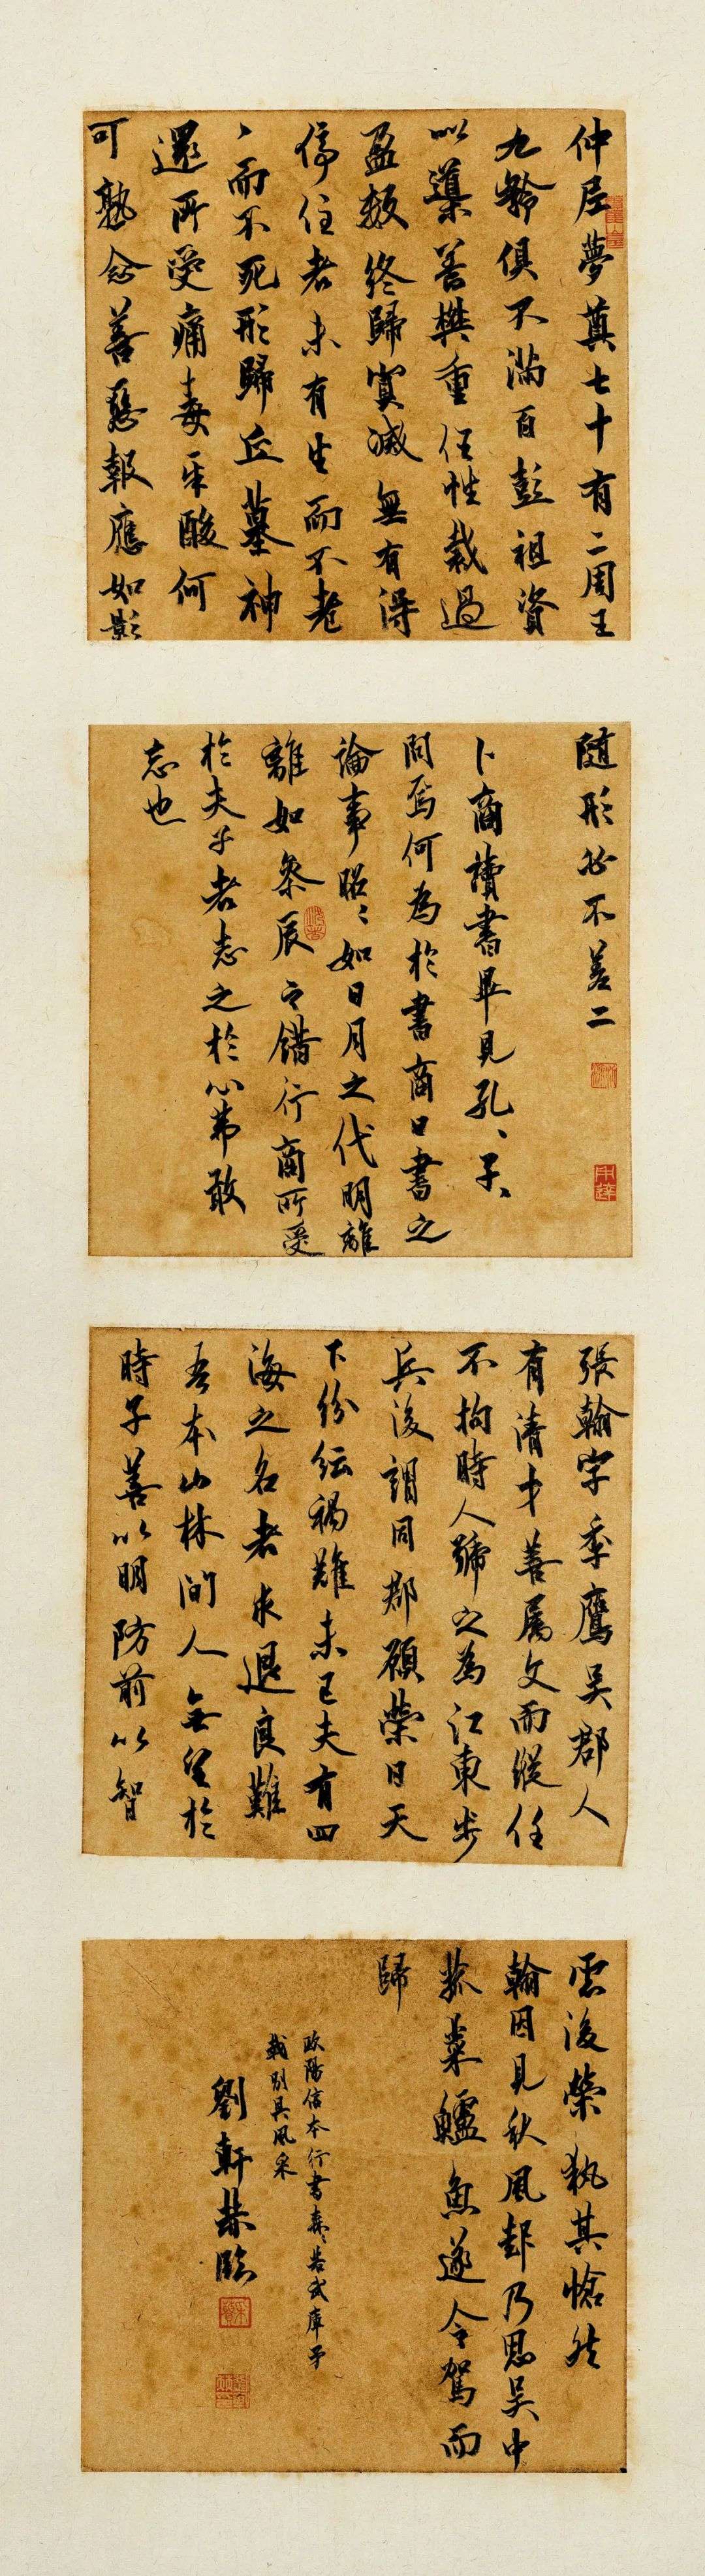 仲尼夢奠七十有二周王
九齡俱不滿百彭祖資
以導養樊重任性裁過
盈數終歸冥滅無有得
停住者未有生而不老
、而不死形歸丘墓神
還所受痛毒辛酸何
可熟念善惡報應如影
随形必不差二
卜商讀書畢見孔、子、
問焉何為於書商曰書之
論事昭〻如日月之代明離
離如參辰之錯行商所受
於夫子者志之於心弗敢
忘也
張翰字季鷹吳郡人
有清才善屬文而縱任
不拘時人號之為江東步
兵後謂同郡顧榮曰天
下紛紜禍難未已夫有四
海之名者求退良難
吾本山林間人無望於
時子善以明防前以智
慮後榮執其愴然
翰因見秋風起乃思吳中
菰菜鱸魚遂令駕而
歸
歐陽信本行書森〻若武庫矛
戟別具風采
劉軒恭臨